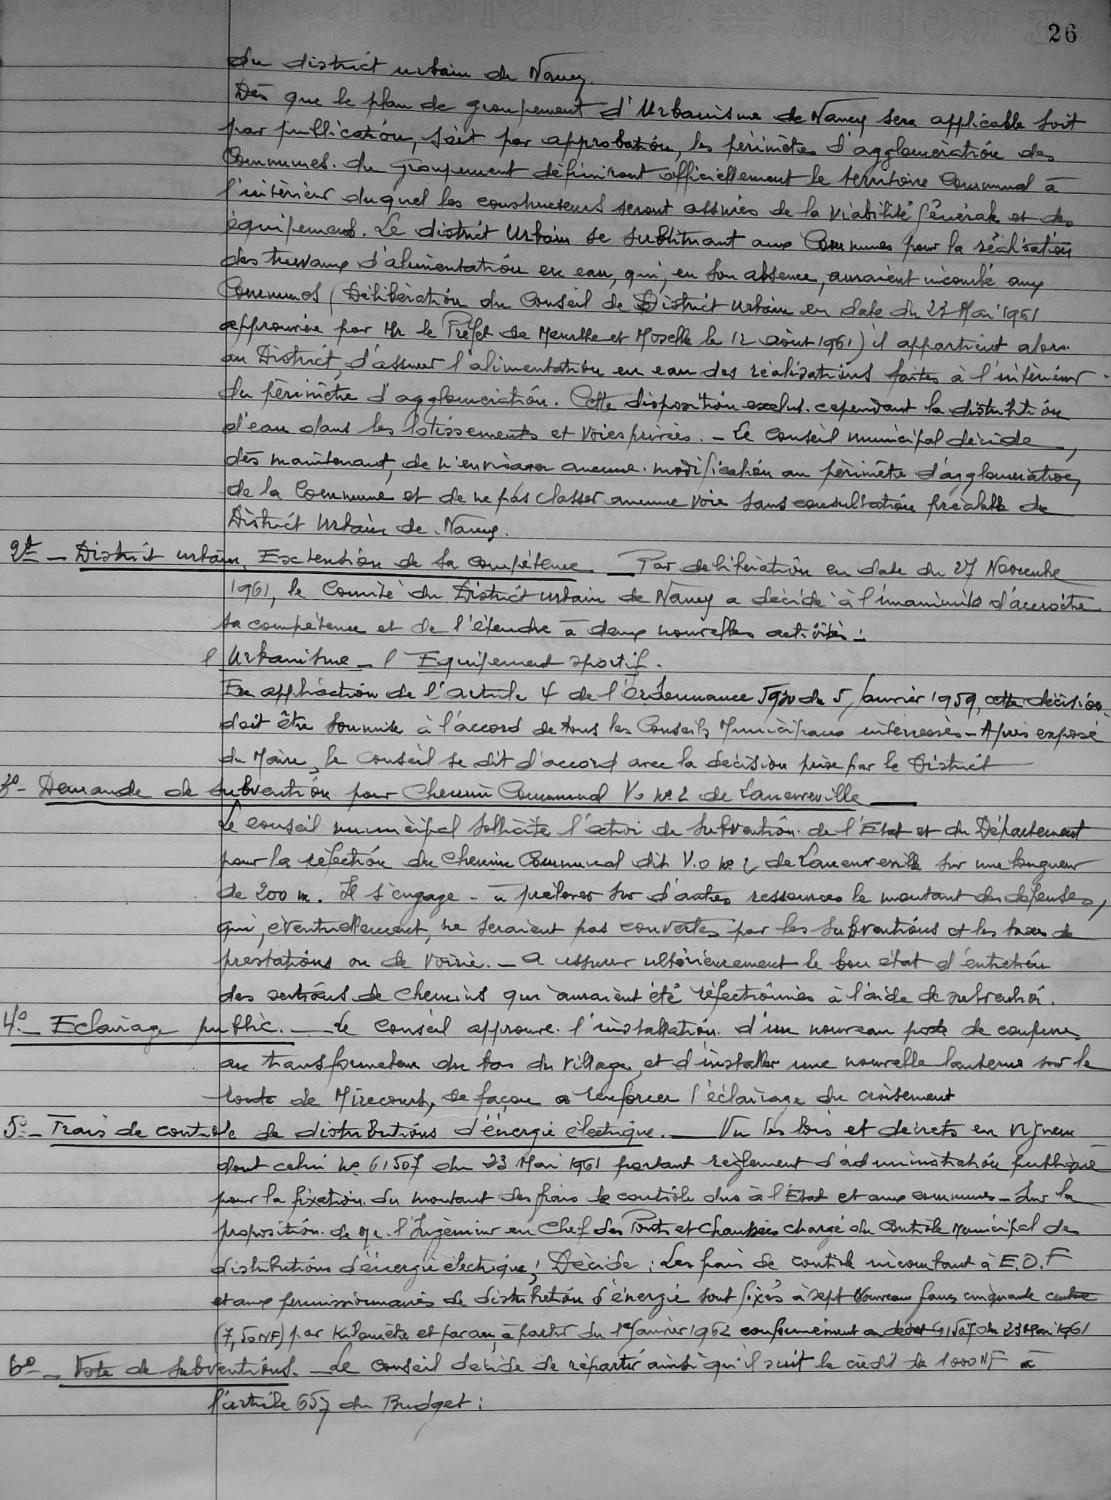 26
du district urbain de Nancy.
Dès que le plan de groupement d'Urbanisme de Nancy sera applicable soit
par publication, soit par approbation, les périmètres d'agglomération des
Communes du Groupement définiront officiellement le territoire Communal à
l'intérieur duquel les constructeurs seront assurés de la viabilité générale et des
équipements. Le district Urbain se substituant aux Communes pour la réalisation
des travaux d'alimentation en eau, qui, en son absence, auraient incombé aux
Communes (Délibération du Conseil de District Urbain en date du 27 Mai 1961
approuvée par Mr le Préfet de Meurthe et Moselle le 12 août 1961) il appartient alors
au District, d'assurer l'alimentation en eau des réalisations faites à l'intérieur
du périmètre d'agglomération. Cette disposition exclut cependant la distribution
d'eau dans les lotissements et voies privées. - Le Conseil municipal décide,
dès maintenant, de n'envisager aucune modification au périmètre d'agglomération,
de la Commune et de ne pas classer aucune voie sans consultation préalable du
District Urbain de Nancy.
2° - District urbain. Extension de sa compétence - Par délibération en date du 27 Novembre
1961, le Comité du District urbain de Nancy a décidé à l'unanimité d'accroître
sa compétence et de l'étendre à deux nouvelles activités :
l'Urbanisme - l'Equipement sportif.
En application de l'article 4 de l'ordonnance 5930 du 5 Janvier 1959, cette décision
doit être soumise à l'accord de tous les Conseils Municipaux intéressés - Après exposé
du Maire, le Conseil se dit d'accord avec la décision prise par le District
3° - Demande de subvention pour Chemin Communal V.o N° 2 de Laneuveville
Le conseil municipal sollicite l'octroi de subvention de l'Etat et du Département
pour la réfection du Chemin Communal dit V.o N° 2 de Laneuveville sur une longueur
de 200 m. Il s'engage - à prélever sur d'autres ressources le montant des dépenses,
qui, éventuellement, ne seraient pas couvertes par les subventions et les taxes de
prestations ou de voirie. - A assurer ultérieurement le bon état d'entretien
des sections de chemins qui auraient été réfectionnées à l'aide de subvention.
4° - Eclairage public. - Le Conseil approuve l'installation d'un nouveau poste de coupure
au transformateur du bas du village, et d'installer une nouvelle lanterne sur la
route de Mirecourt, de façon à renforcer l'éclairage du croisement
5° - Frais de contrôle de distributions d'énergie électrique. - Vu les lois et décrets en vigueur
dont celui N° 61507 du 23 Mai 1961 portant règlement d'administration publique
pour la fixation du montant des frais de contrôle dus à l'Etat et aux communes - Sur la
proposition de Mr. l'Ingénieur en Chef des Ponts et Chaussées chargé du Contrôle Municipal des
distributions d'énergie électrique, Décide : Les frais de contrôle incombant à E.D.F
et aux permissionnaires de distribution d'énergie sont fixés à sept Nouveaux francs cinquante centimes
(7,50 NF) par Kilomètre et par an, à partir du 1er Janvier 1962 conformément au décret 61507 du 23 Mai 1961
6° - Vote de subventions. - Le Conseil décide de répartir ainsi qu'il suit le crédit de 1000 NF à
l'article 657 du Budget :